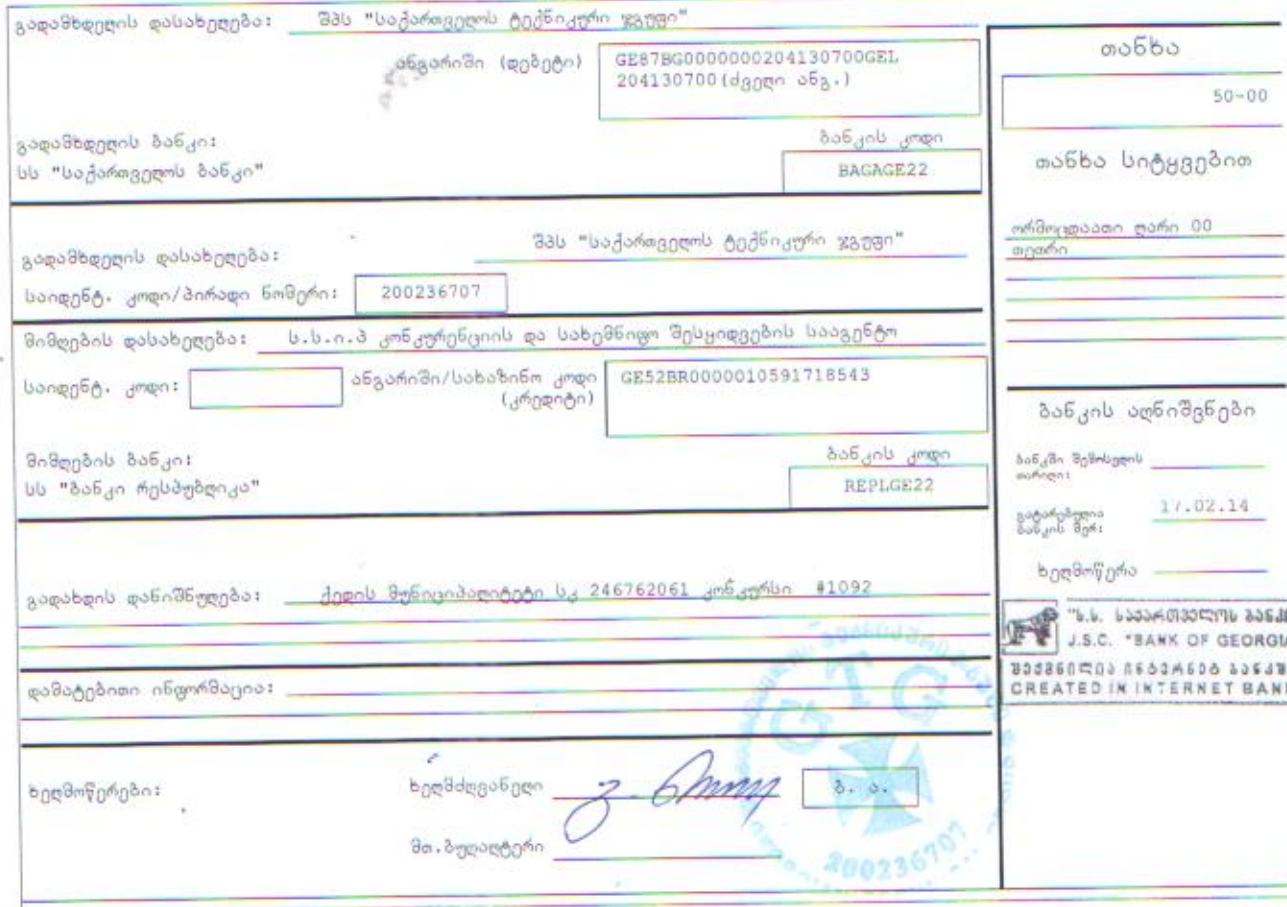 გადამხდელის დასახელება: შპს "საქართველოს ტექნიკური ჯგუფი"
ანგარიში (დებეტი) GE87BG0000000204130700GEL
204130700(ძველი ანგ.)
გადამხდელის ბანკი: ბანკის კოდი
სს "საქართველოს ბანკი" BAGAGE22
გადამხდელის დასახელება: შპს "საქართველოს ტექნიკური ჯგუფი"
საიდენტ. კოდი/პირადი ნომერი: 200236707
მიმღების დასახელება: ს.ს.ი.პ კონკურენციის და სახემწიფო შესყიდვების სააგენტო
საიდენტ. კოდი: ანგარიში/სახაზინო კოდი GE52BR0000010591718543
(კრედიტი)
მიმღების ბანკი: ბანკის კოდი
სს "ბანკი რესპუბლიკა" REPLGE22
გადახდის დანიშნულება: ქედის მუნიციპალიტეტი სკ 246762061 კონკურსი #1092
დამატებითი ინფორმაცია:
ხელმოწერები: ხელმძღვანელი ბ. ა.
მთ.ბუღალტერი
თანხა
50-00
თანხა სიტყვებით
ორმოცდაათი ლარი 00
თეთრი
ბანკის აღნიშვნები
ბანკში შემოსვლის
თარიღი:
გატარებულია
ბანკის მერ: 17.02.14
ხელმოწერა
"ს.ს. საქართველოს ბანკ
J.S.C. "BANK OF GEORGIA
შექმნილია ინტერნეტ ბანკში
CREATED IN INTERNET BANK
GTG
200236707